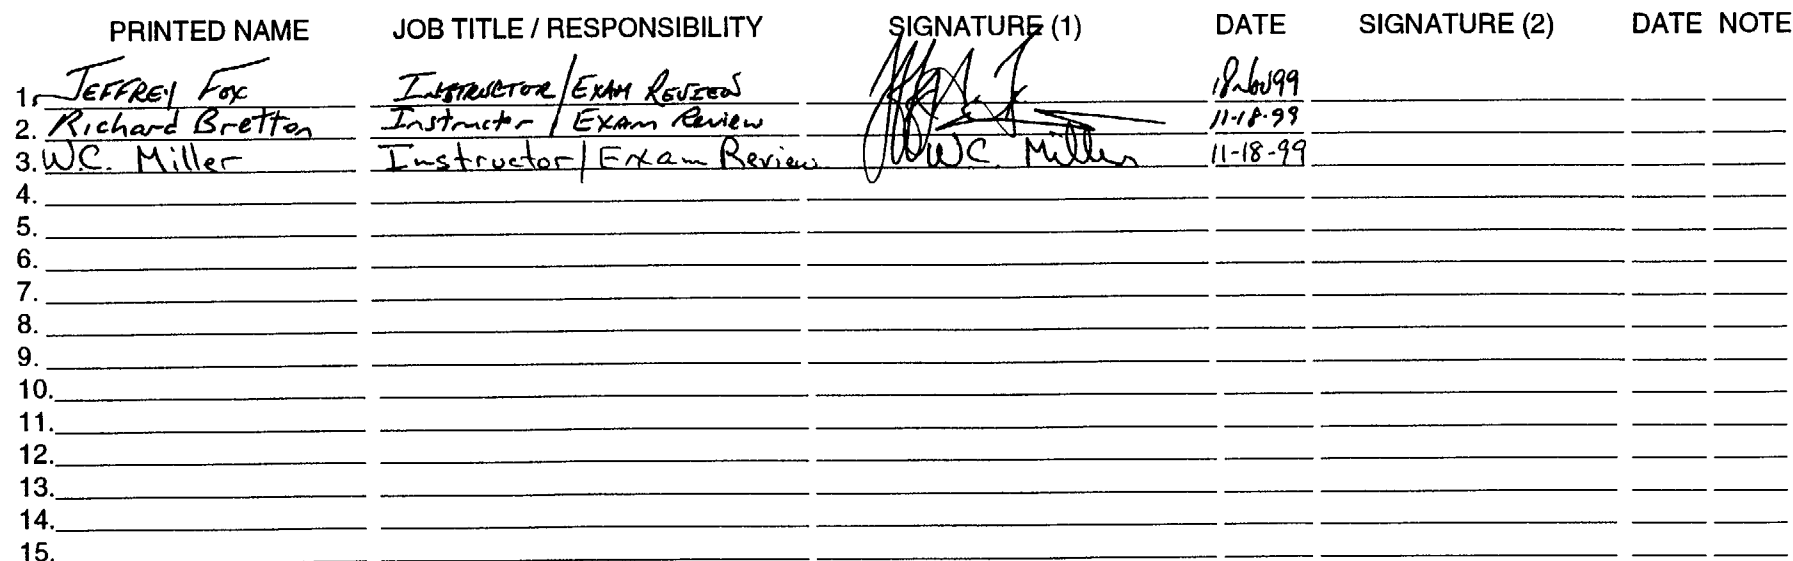 PRINTED NAME JOB TITLE / RESPONSIBILITY SIGNATURE (1) DATE SIGNATURE (2) DATE NOTE
1. JEFFREY FOX INSTRUCTOR / EXAM REVIEW 18 Nov 99
2. Richard Bretton Instructor / Exam Review 11-18-99
3. W.C. Miller Instructor / Exam Review W.C. Miller 11-18-99
4.
5.
6.
7.
8.
9.
10.
11.
12.
13.
14.
15.